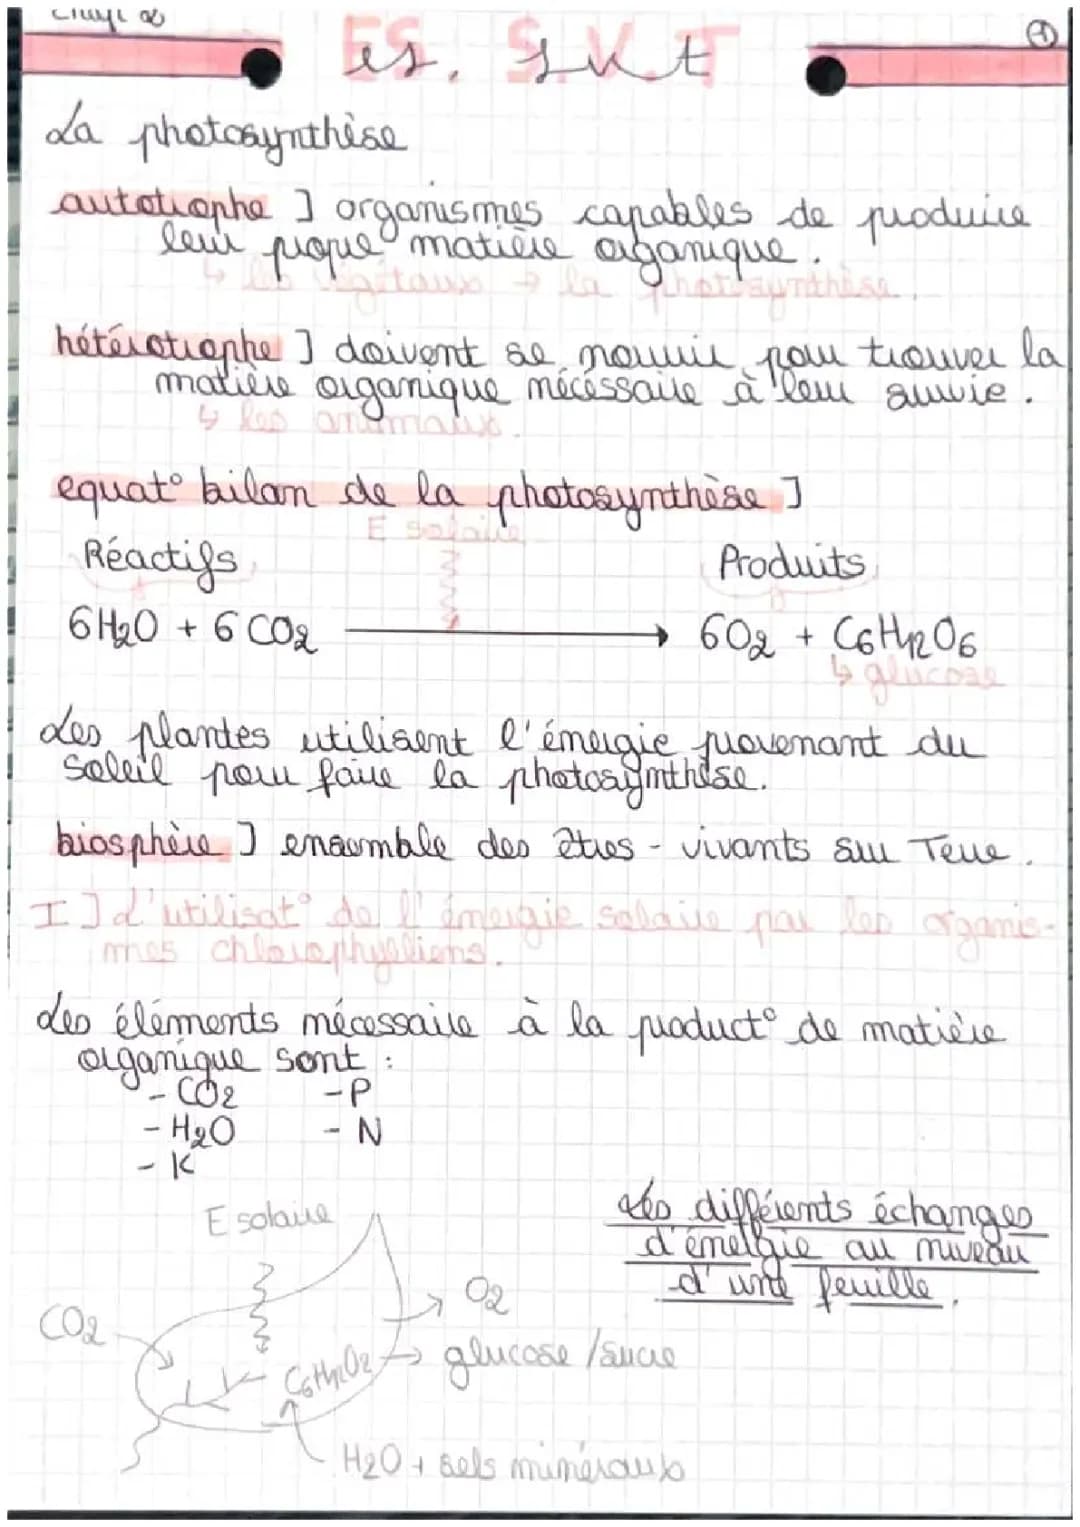 ES. S.V.T
es. svt
1
La photosynthèse
autotrophe ] organismes capables de produire
leur propre matière organique.
↳ les végétaux → la photosynthèse.
hétérotrophe ] doivent se nourrir pour trouver la
matière organique nécessaire à leur survie.
↳ les animaux.
equat° bilan de la photosynthèse ]
E solaire
Réactifs
Produits
6H2O + 6CO2 → 6O2 + C6H12O6
↳ glucose
Les plantes utilisent l'énergie provenant du
soleil pour faire la photosynthèse.
biosphère ] ensemble des êtres-vivants sur Terre.
I ] L'utilisat° de l'énergie solaire par les organis-
mes chlorophylliens.
Les éléments nécessaire à la product° de matière
organique sont :
- CO2 - P
- H2O - N
- K
E solaire
Les différents échanges
d'énergie au niveau
d'une feuille.
CO2
O2
C6H12O2 → glucose/sucre
H2O + sels minéraux